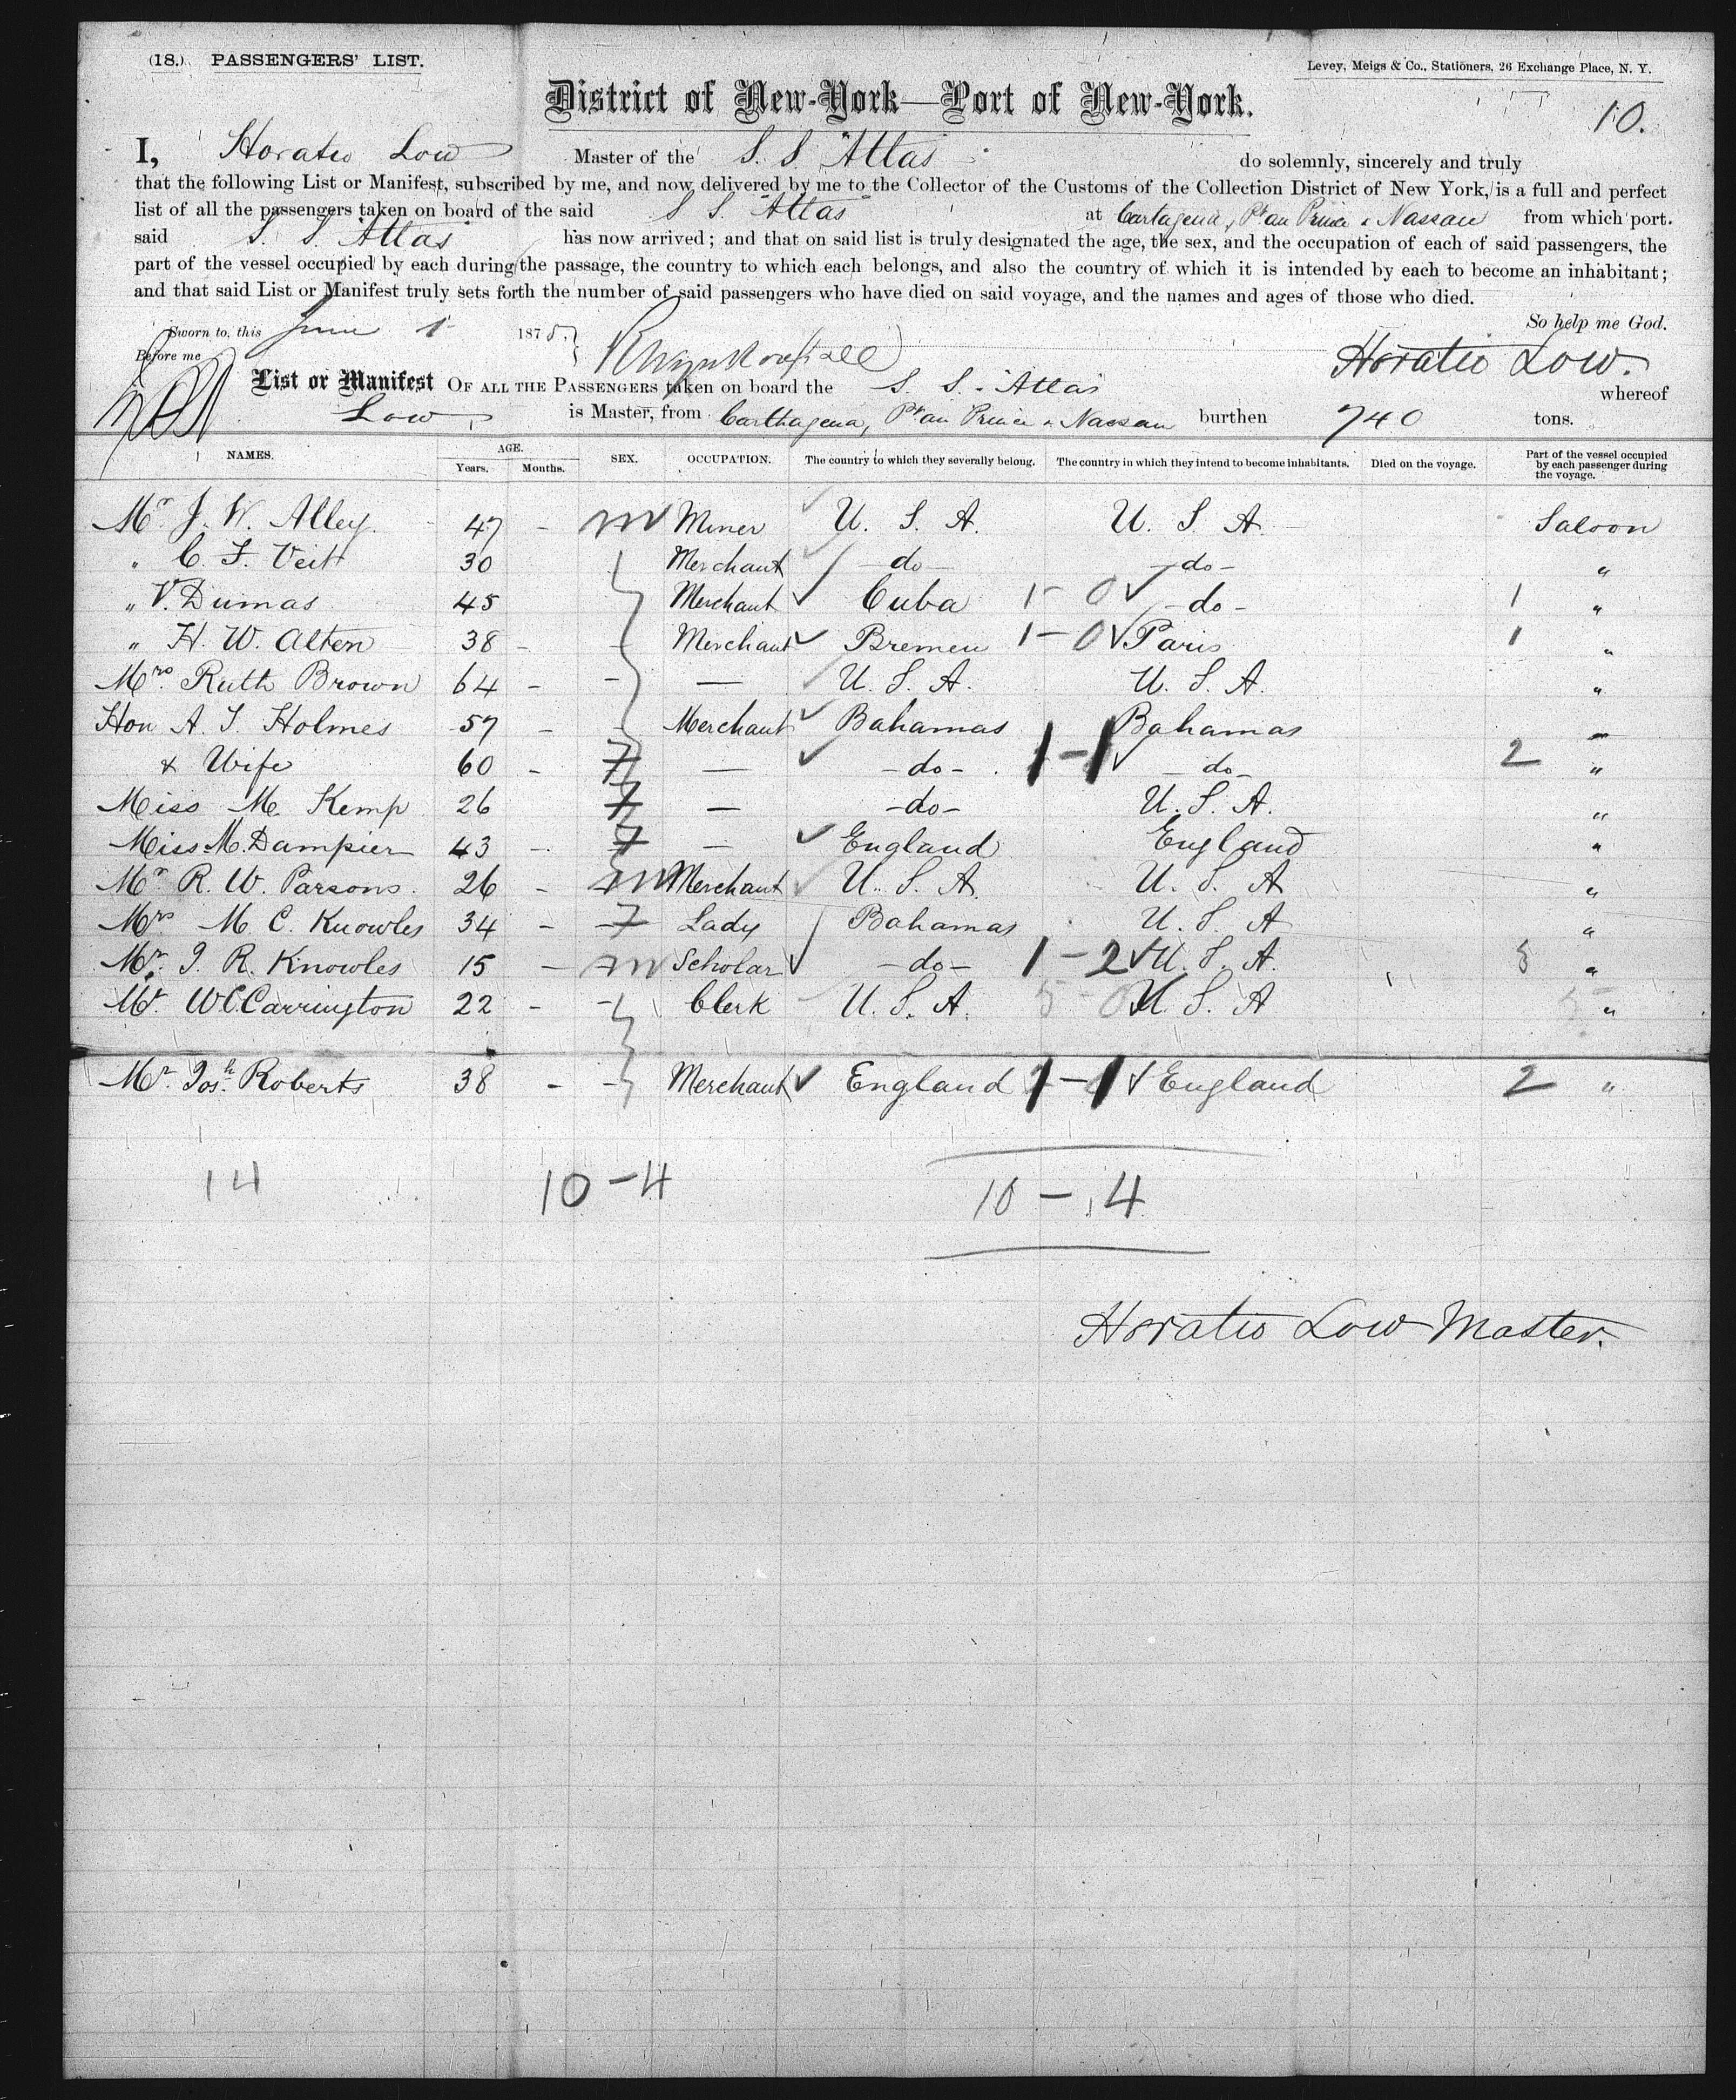 (18.) PASSENGERS' LIST.
Levey, Meigs & Co., Stationers, 26 Exchange Place, N. Y.
District of New-York—Port of New-York.
10.
I, Horatio Low Master of the S. S. "Atlas" do solemnly, sincerely and truly
that the following List or Manifest, subscribed by me, and now delivered by me to the Collector of the Customs of the Collection District of New York, is a full and perfect
list of all the passengers taken on board of the said S S. "Atlas" at Cartagena, Pt au Prince & Nassau from which port.
said S. S. Atlas has now arrived; and that on said list is truly designated the age, the sex, and the occupation of each of said passengers, the
part of the vessel occupied by each during the passage, the country to which each belongs, and also the country of which it is intended by each to become an inhabitant;
and that said List or Manifest truly sets forth the number of said passengers who have died on said voyage, and the names and ages of those who died.
So help me God.
Sworn to, this June 1 1878.
Before me
Horatio Low.
List or Manifest OF ALL THE PASSENGERS taken on board the S. S. "Atlas whereof
Low is Master, from Carthagena, Pt au Prince & Nassau burthen 740 tons.
NAMES. AGE. Years. Months. SEX. OCCUPATION. The country to which they severally belong. The country in which they intend to become inhabitants. Died on the voyage. Part of the vessel occupied by each passenger during the voyage.
Mr J. W. Alley. 47 - m Miner U. S. A. U. S. A Saloon
" C. F. Veitt 30 Merchant - do - - do - "
" V. Dumas 45 Merchant Cuba 1 - 0 - do - 1 "
" H. W. Alten 38 - Merchant Bremen 1 - 0 Paris 1 "
Mrs. Ruth Brown 64 - — U. S. A. U. S. A. "
Hon A. J. Holmes 57 - Merchant Bahamas Bahamas "
& Wife 60 - f — - do - 1 - 1 - do - 2 "
Miss M. Kemp 26 f — - do - U. S. A. "
Miss M. Dampier 43 - f — England England "
Mr R. W. Parsons. 26 - m Merchant U. S. A. U. S. A "
Mrs M. C. Knowles 34 - f Lady Bahamas U. S. A "
Mr. J. R. Knowles 15 - m Scholar - do - 1 - 2 U. S. A. 3 "
Mr. W. C. Carrington 22 - Clerk U. S. A. 5 - 0 U. S. A 5 "
Mr Josh Roberts 38 - Merchant England 1 - 1 England 2 "
14 10 - 4 10 - 4
Horatio Low Master.